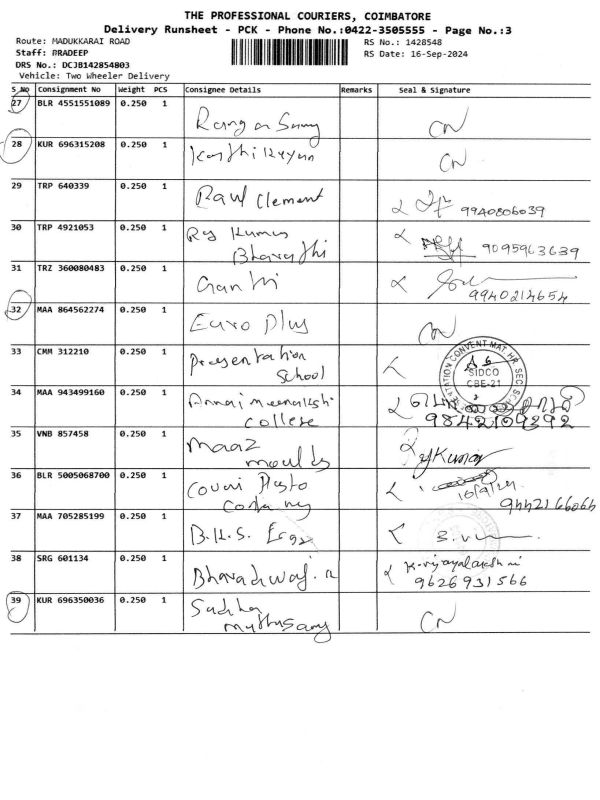 THE PROFESSIONAL COURIERS, COIMBATORE
Delivery Runsheet - PCK - Phone No.:0422-3505555 - Page No.:3
Route: MADUKKARAI ROAD RS No.: 1428548
Staff: PRADEEP RS Date: 16-Sep-2024
DRS No.: DCJB142854803
Vehicle: Two Wheeler Delivery
S_No Consignment No Weight PCS Consignee Details Remarks Seal & Signature
27 BLR 4551551089 0.250 1
CN
28 KUR 696315208 0.250 1
CN
29 TRP 640339 0.250 1 Raul Clement
9940806039
30 TRP 4921053 0.250 1 Raj Kumar
Bharathi 9095963639
31 TRZ 360080483 0.250 1 Ganthi
9940214654
32 MAA 864562274 0.250 1 Euro Plus
CN
33 CMM 312210 0.250 1 Presentation
School
SIDCO
CBE-21
34 MAA 943499160 0.250 1 Annai meenakshi
college 9842109392
35 VNB 857458 0.250 1 Maaz
moulds
36 BLR 5005068700 0.250 1 Covai
16/9/24
9442166066
37 MAA 705285199 0.250 1 B.K.S.
38 SRG 601134 0.250 1 Bharadwaj. R K.vijayalakshmi
9626931566
39 KUR 696350036 0.250 1
Muthusamy CN